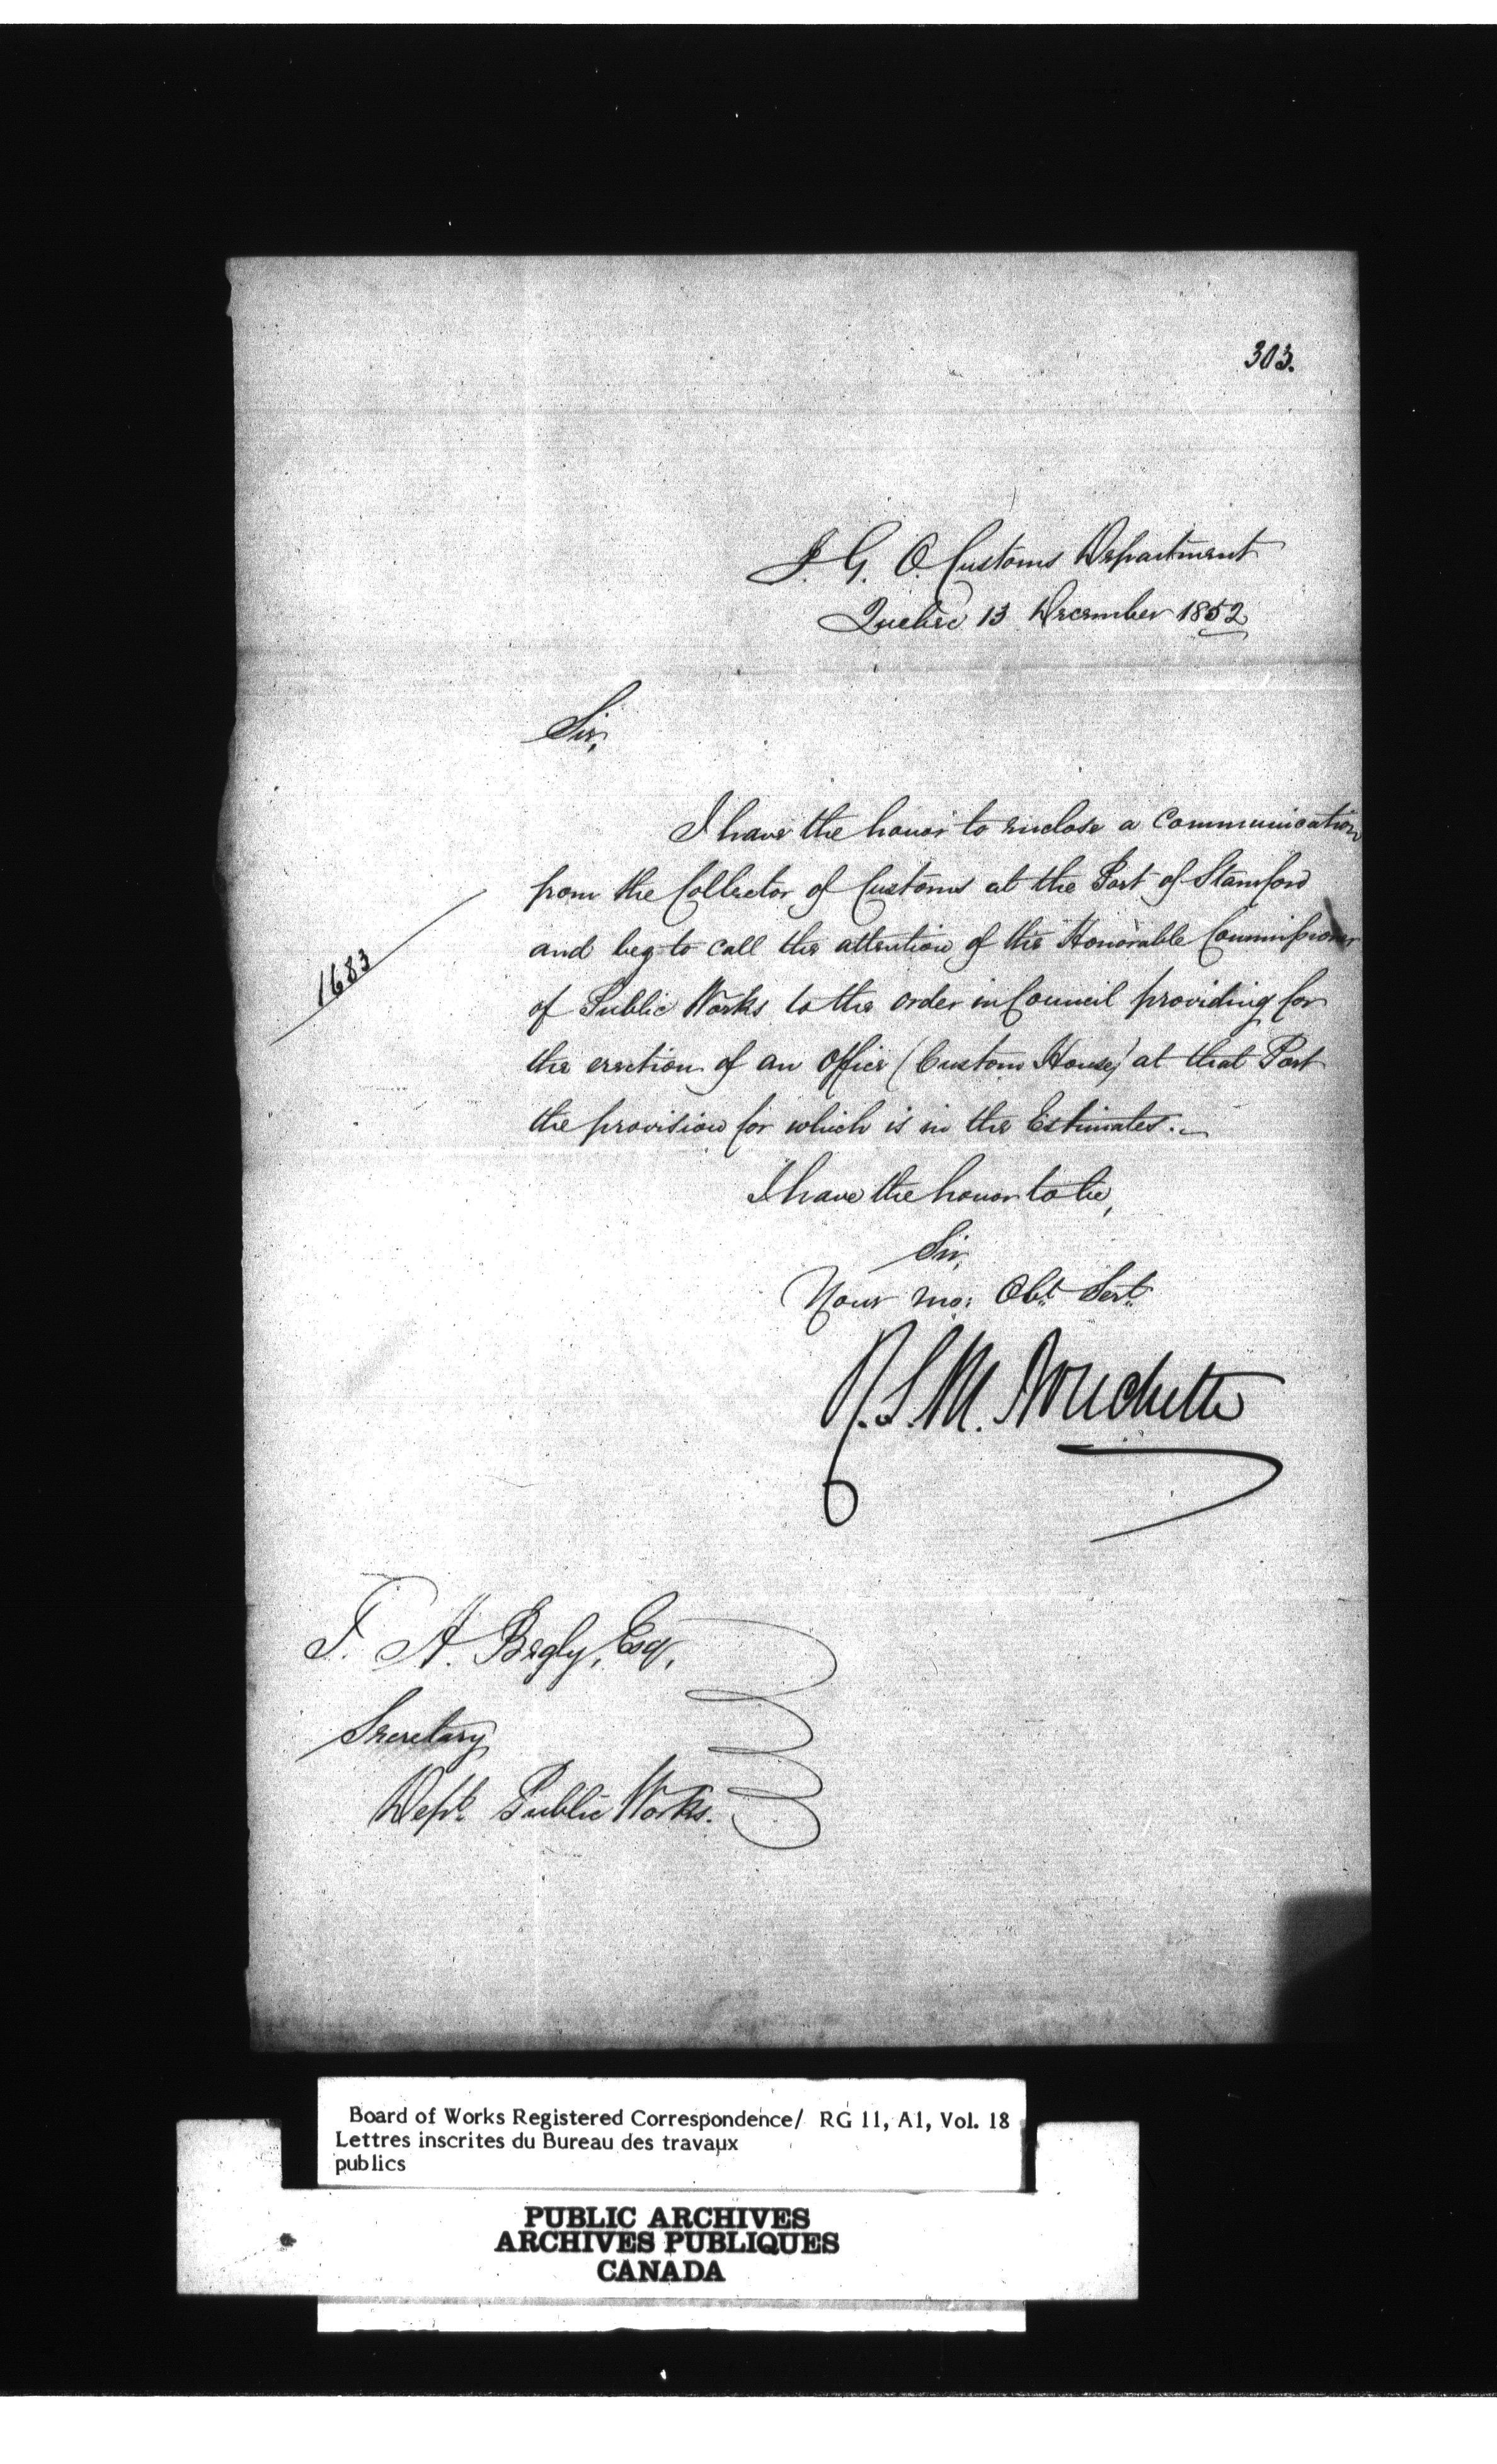 303.
I. G. O. Customs Department
Quebec 13 December 1852
Sir,
I have the honor to enclose a Communication
from the Collector of Customs at the Port of Stamford
and beg to call the attention of the Honorable Commissioner
1683
of Public Works to the order in Council providing for
the erection of an Office (Custom House) at that Port
the provision for which is in the Estimates.
I have the honor to be,
Sir,
Your mo: Obt. Sert.
R. S. M. Bouchette
T. A. Begly, Esq,
Secretary
Dept. Public Works.
Board of Works Registered Correspondence/ RG 11, A1, Vol. 18
Lettres inscrites du Bureau des travaux
publics
PUBLIC ARCHIVES
ARCHIVES PUBLIQUES
CANADA